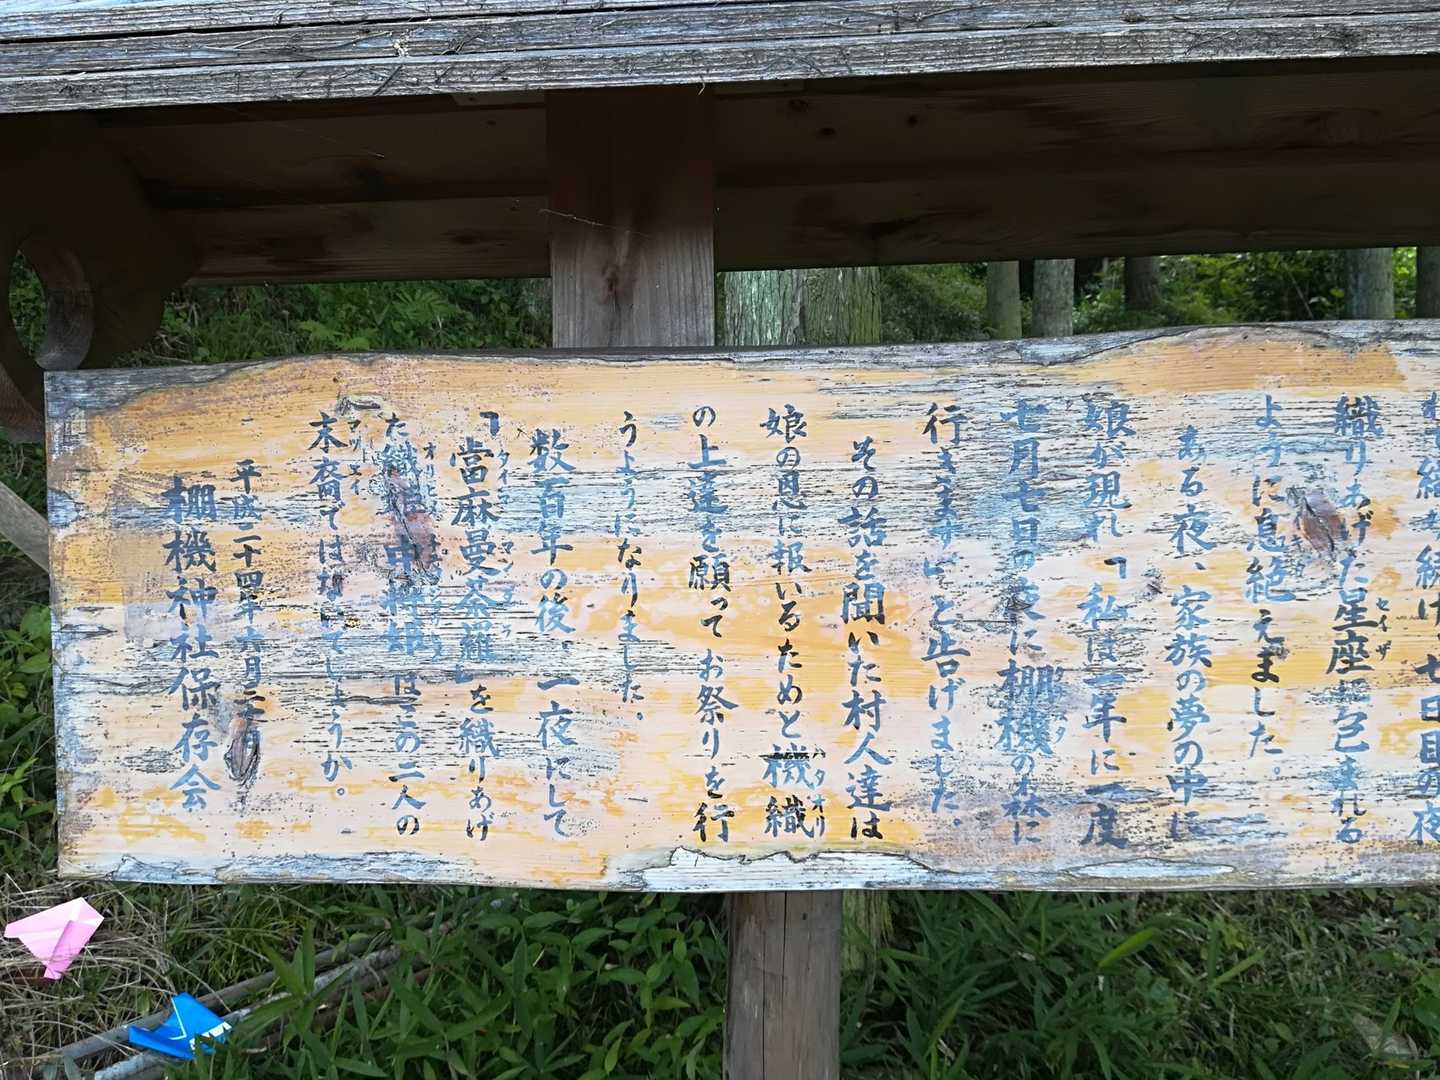 織り続け、七日目の夜
織りあげた星座に包まれる
ように息絶えました。
ある夜、家族の夢の中に
娘が現れ「私は一年に一度
七月七日の夜に棚機の森に
行きます」と告げました。
その話を聞いた村人達は
娘の恩に報いるためと機織
の上達を願ってお祭りを行
うようになりました。
数百年の後、一夜にして
「當麻曼荼羅」を織りあげ
た織姫 中将姫はこの二人の
末裔ではないでしょうか。
平成二十四年六月
棚機神社保存会